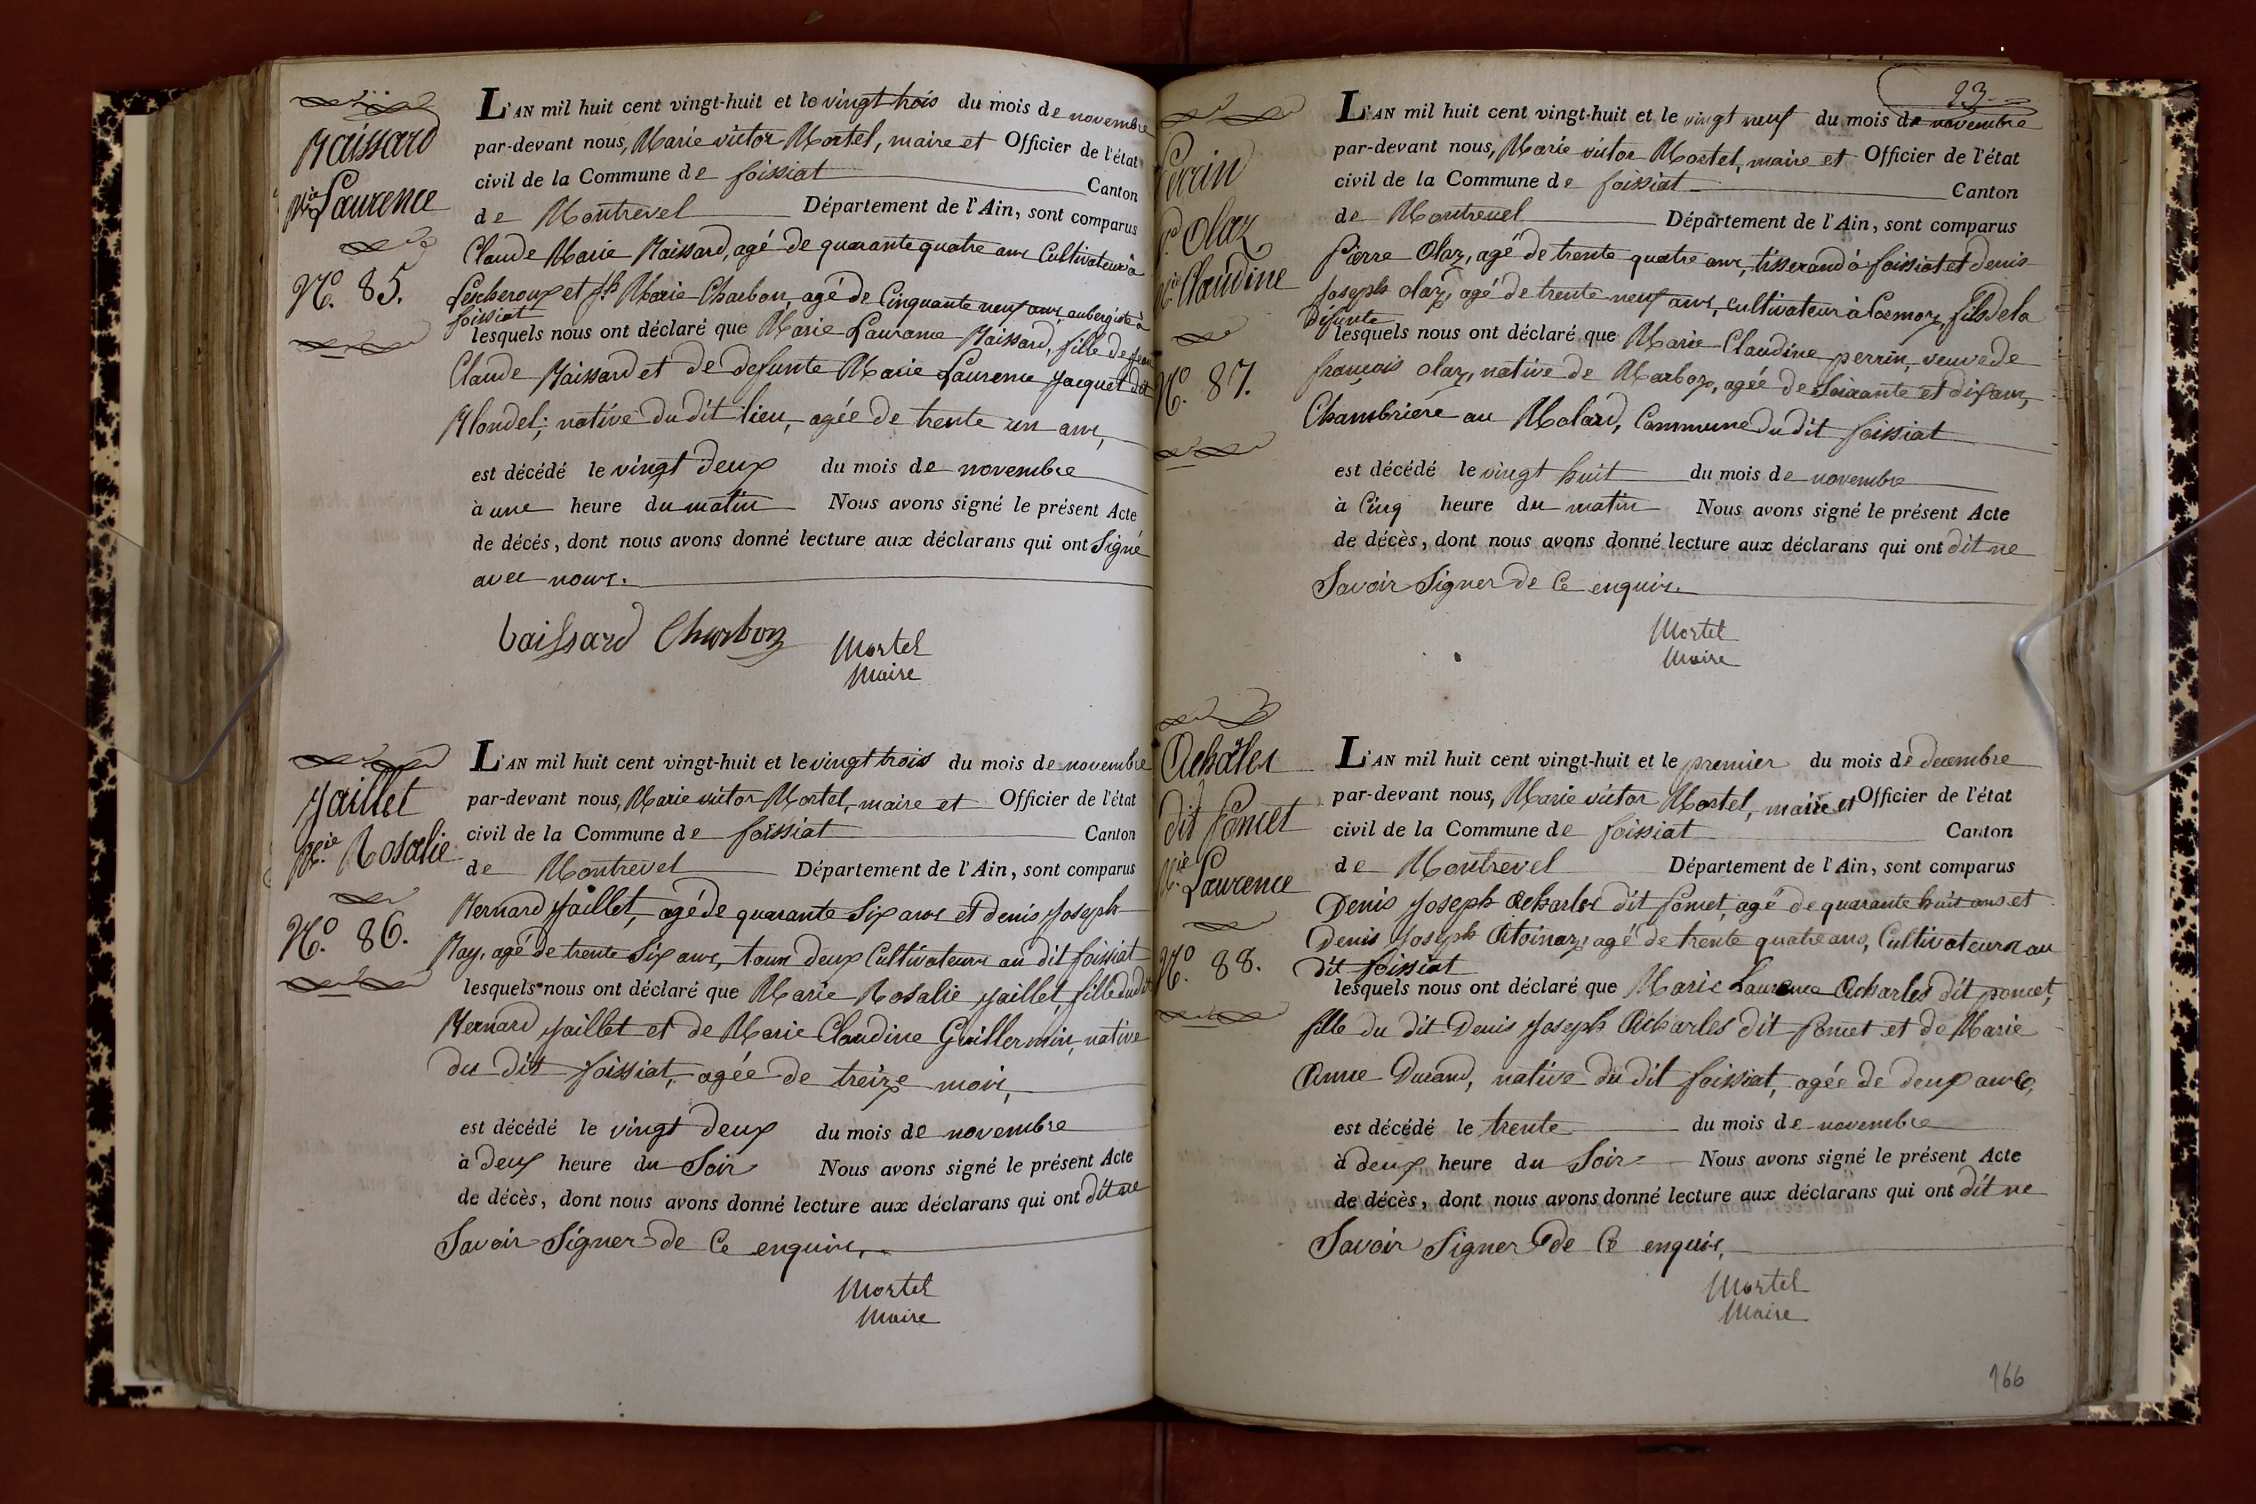 Vaissard
Mie Laurence
No. 85.
L'AN mil huit cent vingt-huit et le vingt trois du mois de novembre
par-devant nous, Marie victor Mortel, maire et Officier de l'état
civil de la Commune de foissiat Canton
de Montrevel Département de l'Ain, sont comparus
Claude Marie Vaissard, agé de quarante quatre ans Cultivateur à
Lescheroux et jh Marie Charbon, agé de Cinquante neuf ans, aubergiste à
foissiat
lesquels nous ont déclaré que Marie Laurance Vaissard, fille de
Claude Vaissard et de defunte Marie Laurence Jacquet dit
Blondel; native du dit lieu, agée de trente un ans,
est décédé le vingt deux du mois de novembre
à une heure du matin Nous avons signé le présent Acte
de décés, dont nous avons donné lecture aux déclarans qui ont Signé
avec nous.
Vaissard Charbon Mortel
Maire
Jaillet
Mie Rosalie
No. 86.
L'AN mil huit cent vingt-huit et le vingt trois du mois de novembre
par-devant nous, Marie victor Mortel, maire et Officier de l'état
civil de la Commune de foissiat Canton
de Montrevel Département de l'Ain, sont comparus
Bernard Jaillet, agé de quarante Six ans et denis Joseph
Ray, agé de trente Six ans, tous deux Cultivateurs au dit foissiat
lesquels nous ont déclaré que Marie Rosalie Jaillet, fille du dit
Bernard Jaillet et de Marie Claudine Guillermin, native
du dit foissiat, agée de treize mois,
est décédé le vingt deux du mois de novembre
à deux heure du Soir Nous avons signé le présent Acte
de décès, dont nous avons donné lecture aux déclarans qui ont dit ne
Savoir Signer de Ce enquis.
Mortel
Maire
23
Perrin
Ve Olaz
Mie Claudine
No. 87.
L'AN mil huit cent vingt-huit et le vingt neuf du mois de novembre
par-devant nous, Marie victor Mortel, maire et Officier de l'état
civil de la Commune de foissiat Canton
de Montrevel Département de l'Ain, sont comparus
Pierre Olaz, agé de trente quatre ans, tisserand à foissiat et denis
Joseph olaz, agé de trente neuf ans, cultivateur à Cormoz, fils de la
Défunte
lesquels nous ont déclaré que Marie Claudine perrin, veuve de
françois olaz, native de Marboz, agée de Soixante et dix ans,
Chambrière au Molard, Commune du dit foissiat
est décédé le vingt huit du mois de novembre
à Cinq heure du matin Nous avons signé le présent Acte
de décès, dont nous avons donné lecture aux déclarans qui ont dit ne
Savoir Signer de Ce enquis.
Mortel
Maire
Acharles
dit Poncet
Mie Laurence
No. 88.
L'AN mil huit cent vingt-huit et le premier du mois de decembre
par-devant nous, Marie victor Mortel, maire et Officier de l'état
civil de la Commune de foissiat Canton
de Montrevel Département de l'Ain, sont comparus
Denis Joseph Acharles dit Poncet, agé de quarante huit ans et
Denis Joseph agé de trente quatre ans, Cultivateurs au
dit foissiat
lesquels nous ont déclaré que Marie Laurence Acharles dit poncet,
fille du dit Denis Joseph Acharles dit Poncet et de Marie
Anne Durand, native du dit foissiat, agée de deux ans,
est décédé le trente du mois de novembre
à deux heure du Soir Nous avons signé le présent Acte
de décès, dont nous avons donné lecture aux déclarans qui ont dit ne
Savoir Signer de Ce enquis.
Mortel
Maire
166